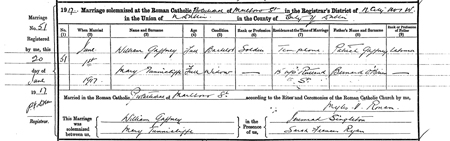 1917. Marriage solemnized at the Roman Catholic in the Registrar's District of
in the Union of Dublin in the County of City of Dublin
Marriage No. 51
Registered by me, this
20
day of
June
1917
Registrar.
No. (1)
When Married (2)
Name and Surname (3)
Age (4)
Condition (5)
Rank or Profession (6)
Residence at the Time of Marriage (7)
Father's Name and Surname (8)
Rank or Profession of Father (9)
51
June 1st 1917
William Gaffney Full Bachelor Soldier Patrick Gaffney Labourer
Mary Tunnicliffe Full Widow
Married in the Roman Catholic Marlboro St according to the Rites and Ceremonies of the Roman Catholic Church by me,
Myles V. Ronan
This Marriage was solemnized between us,
William Gaffney
Mary Tunnicliffe
in the Presence of us,
Singleton
Sarah Frances Ryan